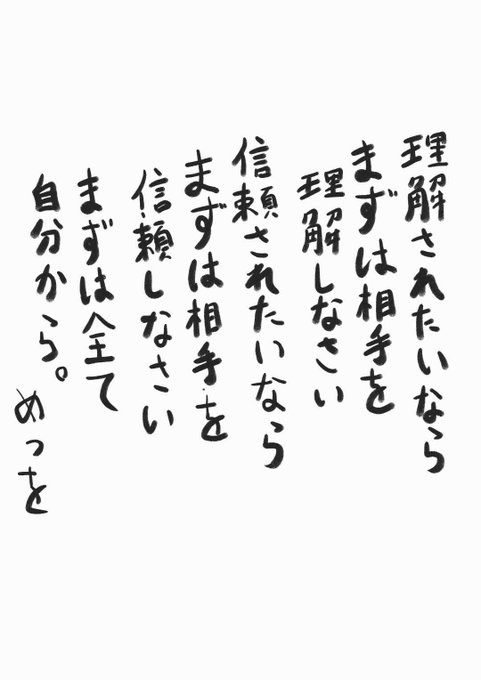 理解されたいなら
まずは相手を
理解しなさい
信頼されたいなら
まずは相手を
信頼しなさい
まずは全て
自分から。
めっを